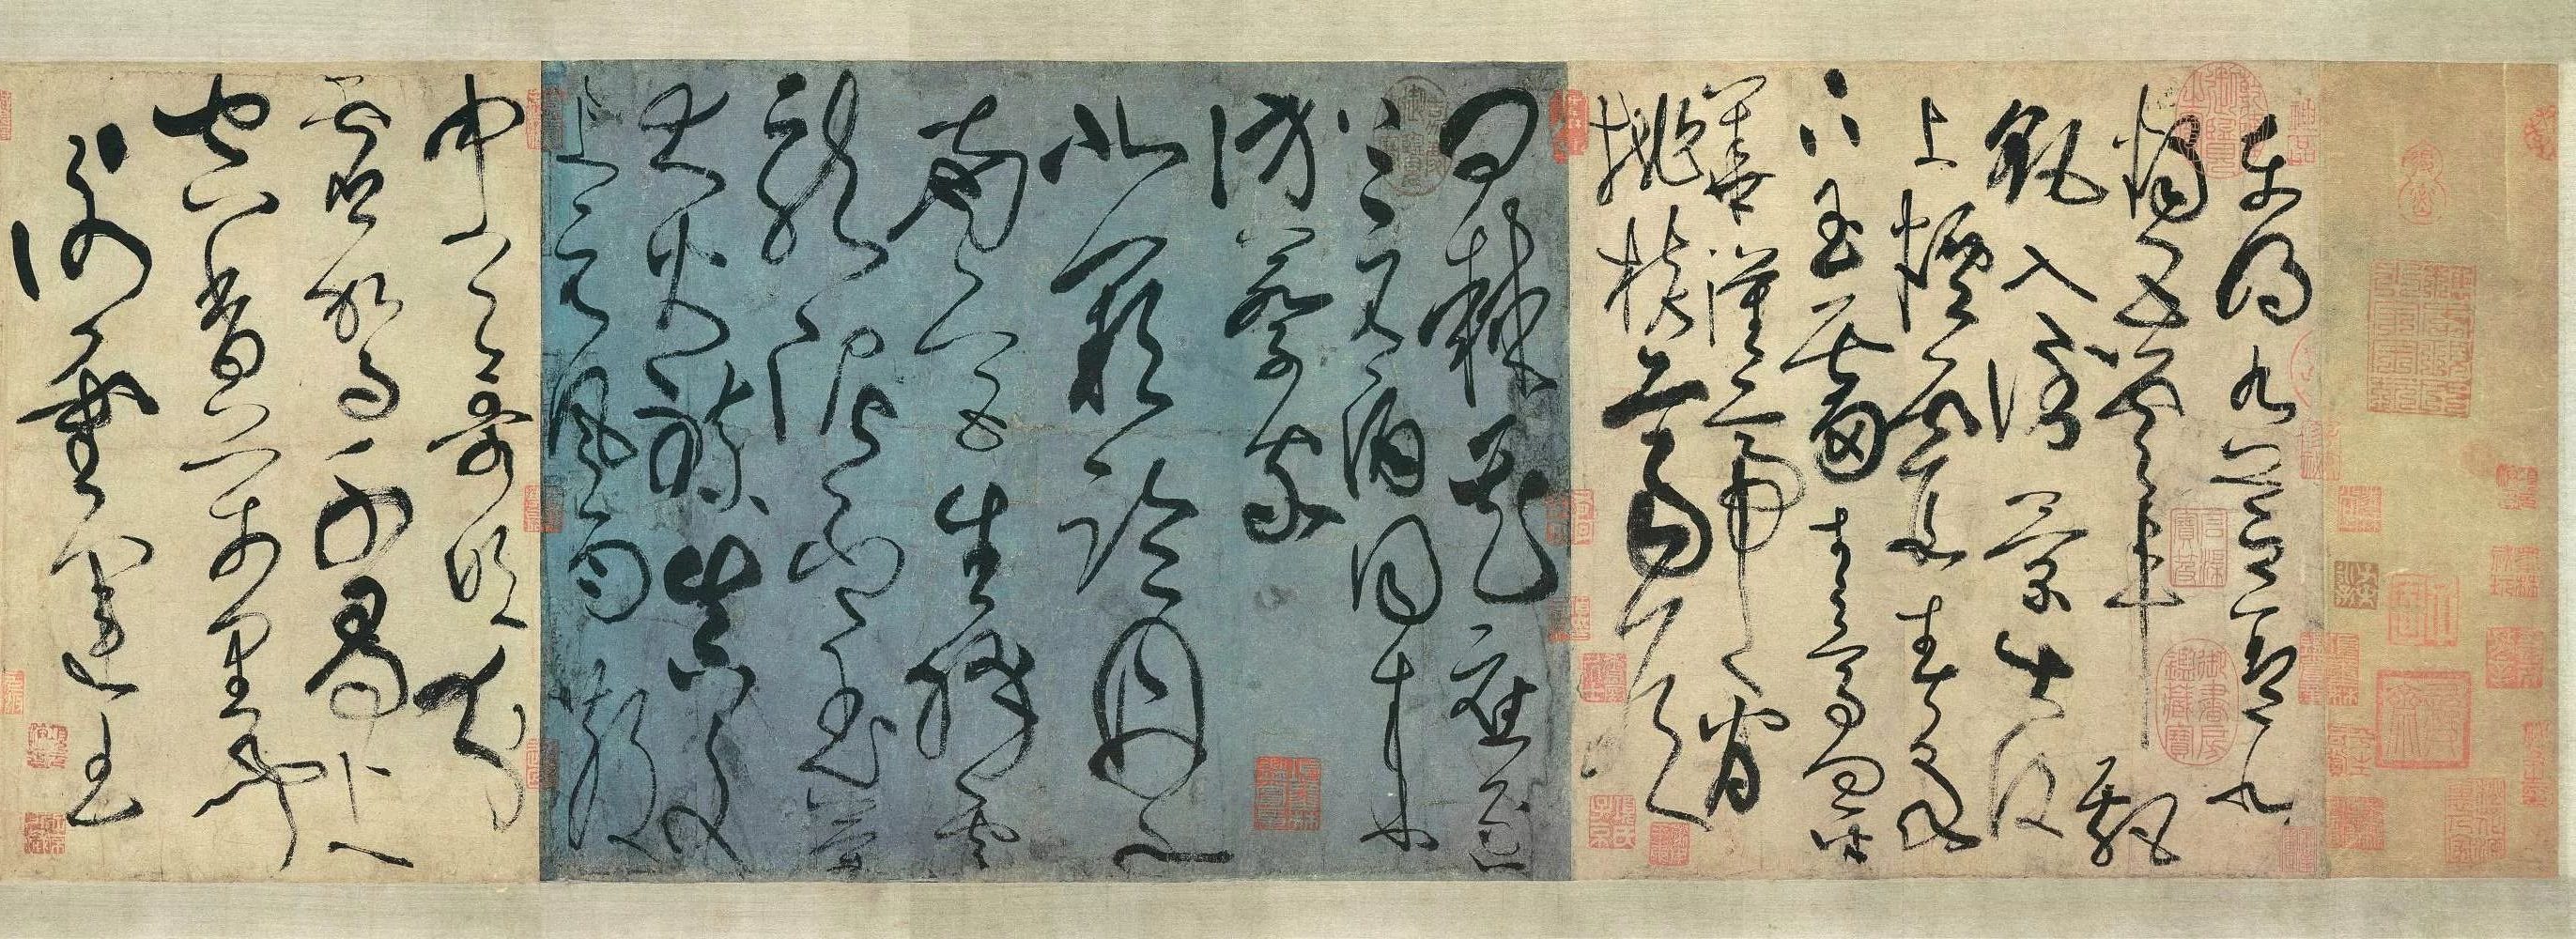 東明九芝蓋北
燭五雲車飄
飖入倒景出沒
上煙霞春泉
下玉霤青鳥向金
華漢帝看
桃核齊侯
問棘花應逐
上元酒同來
訪蔡家
北闕臨丹水
南宮生絳雲
龍泥印玉簡
大火煉真文
上元風雨散
中天哥吹分
虛駕千尋上
空香萬里聞
謝靈運王
御書房鑑藏寶